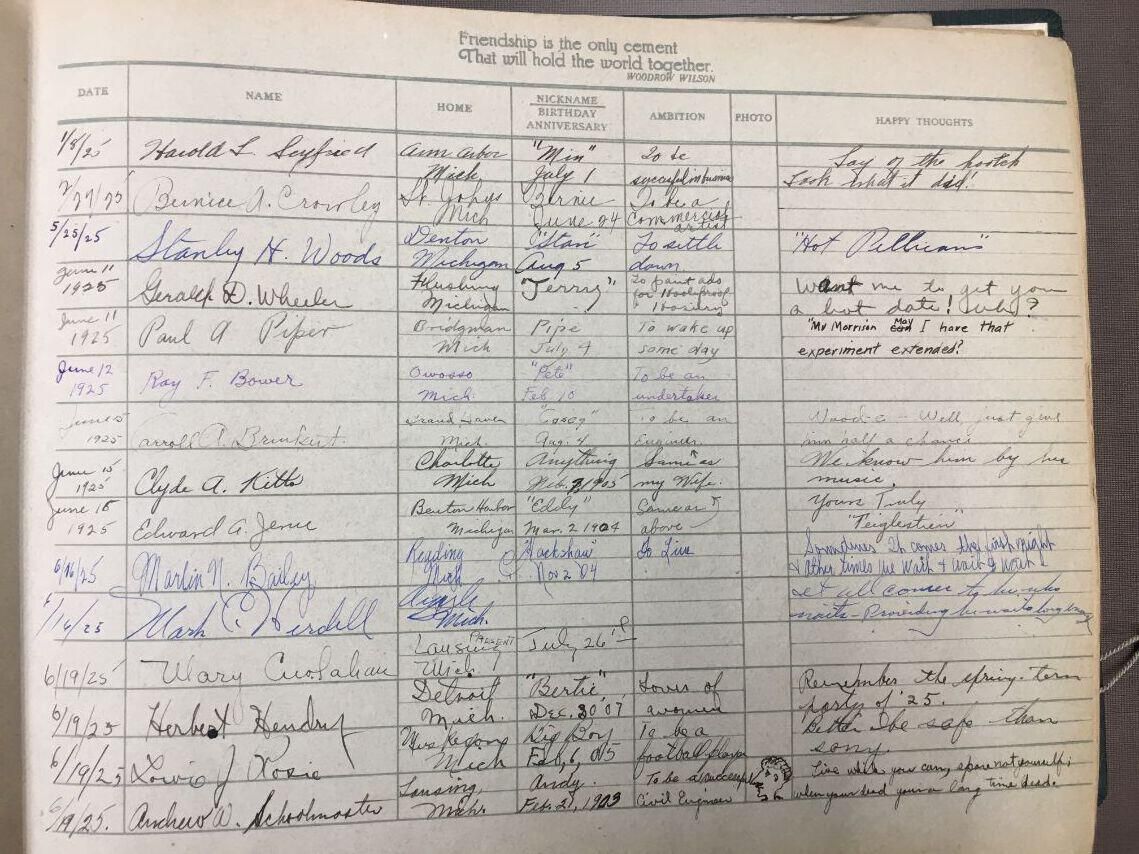 Friendship is the only cement
That will hold the world together.
WOODROW WILSON
DATE NAME HOME NICKNAME BIRTHDAY ANNIVERSARY AMBITION PHOTO HAPPY THOUGHTS
1/8/25 Harold L. Seyfried Ann Arbor "Min" To be Lay of the hootch
Mich. July 1 successful in business Look what it did!
2/27/25 Bernice A. Crowley St. Johns Bernie To be a
Mich June 24 Commercial artist
5/25/25 Stanley H. Woods Denton "Stan" To settle "Hot Pellicans"
Michigan Aug 5 down
June 11 Gerald D. Wheeler Flushing "Jerry" To paint ads Want me to get you
1925 Michigan for Holeproof Hosiery a hot date!
June 11 Paul A Piper Bridgman Pipe To wake up "Mr Morrison May I have that
1925 Mich July 4 some day experiment extended?
June 12 Ray F. Bower Owosso "Pete" To be an
1925 Mich. Feb. 10 undertaker
June 15 Carroll A. Brinkert. Grand Haven "Casey" To be an Well just give
1925 Mich. Aug. 4 Engineer. him half a chance
June 15 Clyde A. Kitts Charlotte Anything Same as We know him by his
1925 Mich Feb. 7, 1905 my Wife. music.
June 16 Edward A. Jene Benton Harbor "Eddy" Same as Yours Truly
1925 Michigan Mar. 2 1904 above "Teiglestein"
6/16/25 Marlin N. Bailey Reading "Hackshaw" To Live Sometimes It comes the first night
Mich Nov 2 '04 & other times we wait & wait & wait
6/16/25 Mark C. Herdell Mich. It all comes to him who
waits - Providing he waits long enough
6/19/25 Mary Cusahan Lansing PRESENT July 26th
Mich.
6/19/25 Herbert Hendry Detroit "Bertie" Lover of Remember the spring-term
Mich. Dec. 30 07 women party of '25.
6/19/25 Lowie J Rosie Muskegon Big Boy To be a Better be safe than
Mich Feb, 6, 05 football player sorry.
6/19/25. Andrew W. Schoolmaster Lansing, Andy. To be a successful Live while you can, spare not yourself;
Mich. Feb. 2, 1903 Civil Engineer when your dead your a long time dead.